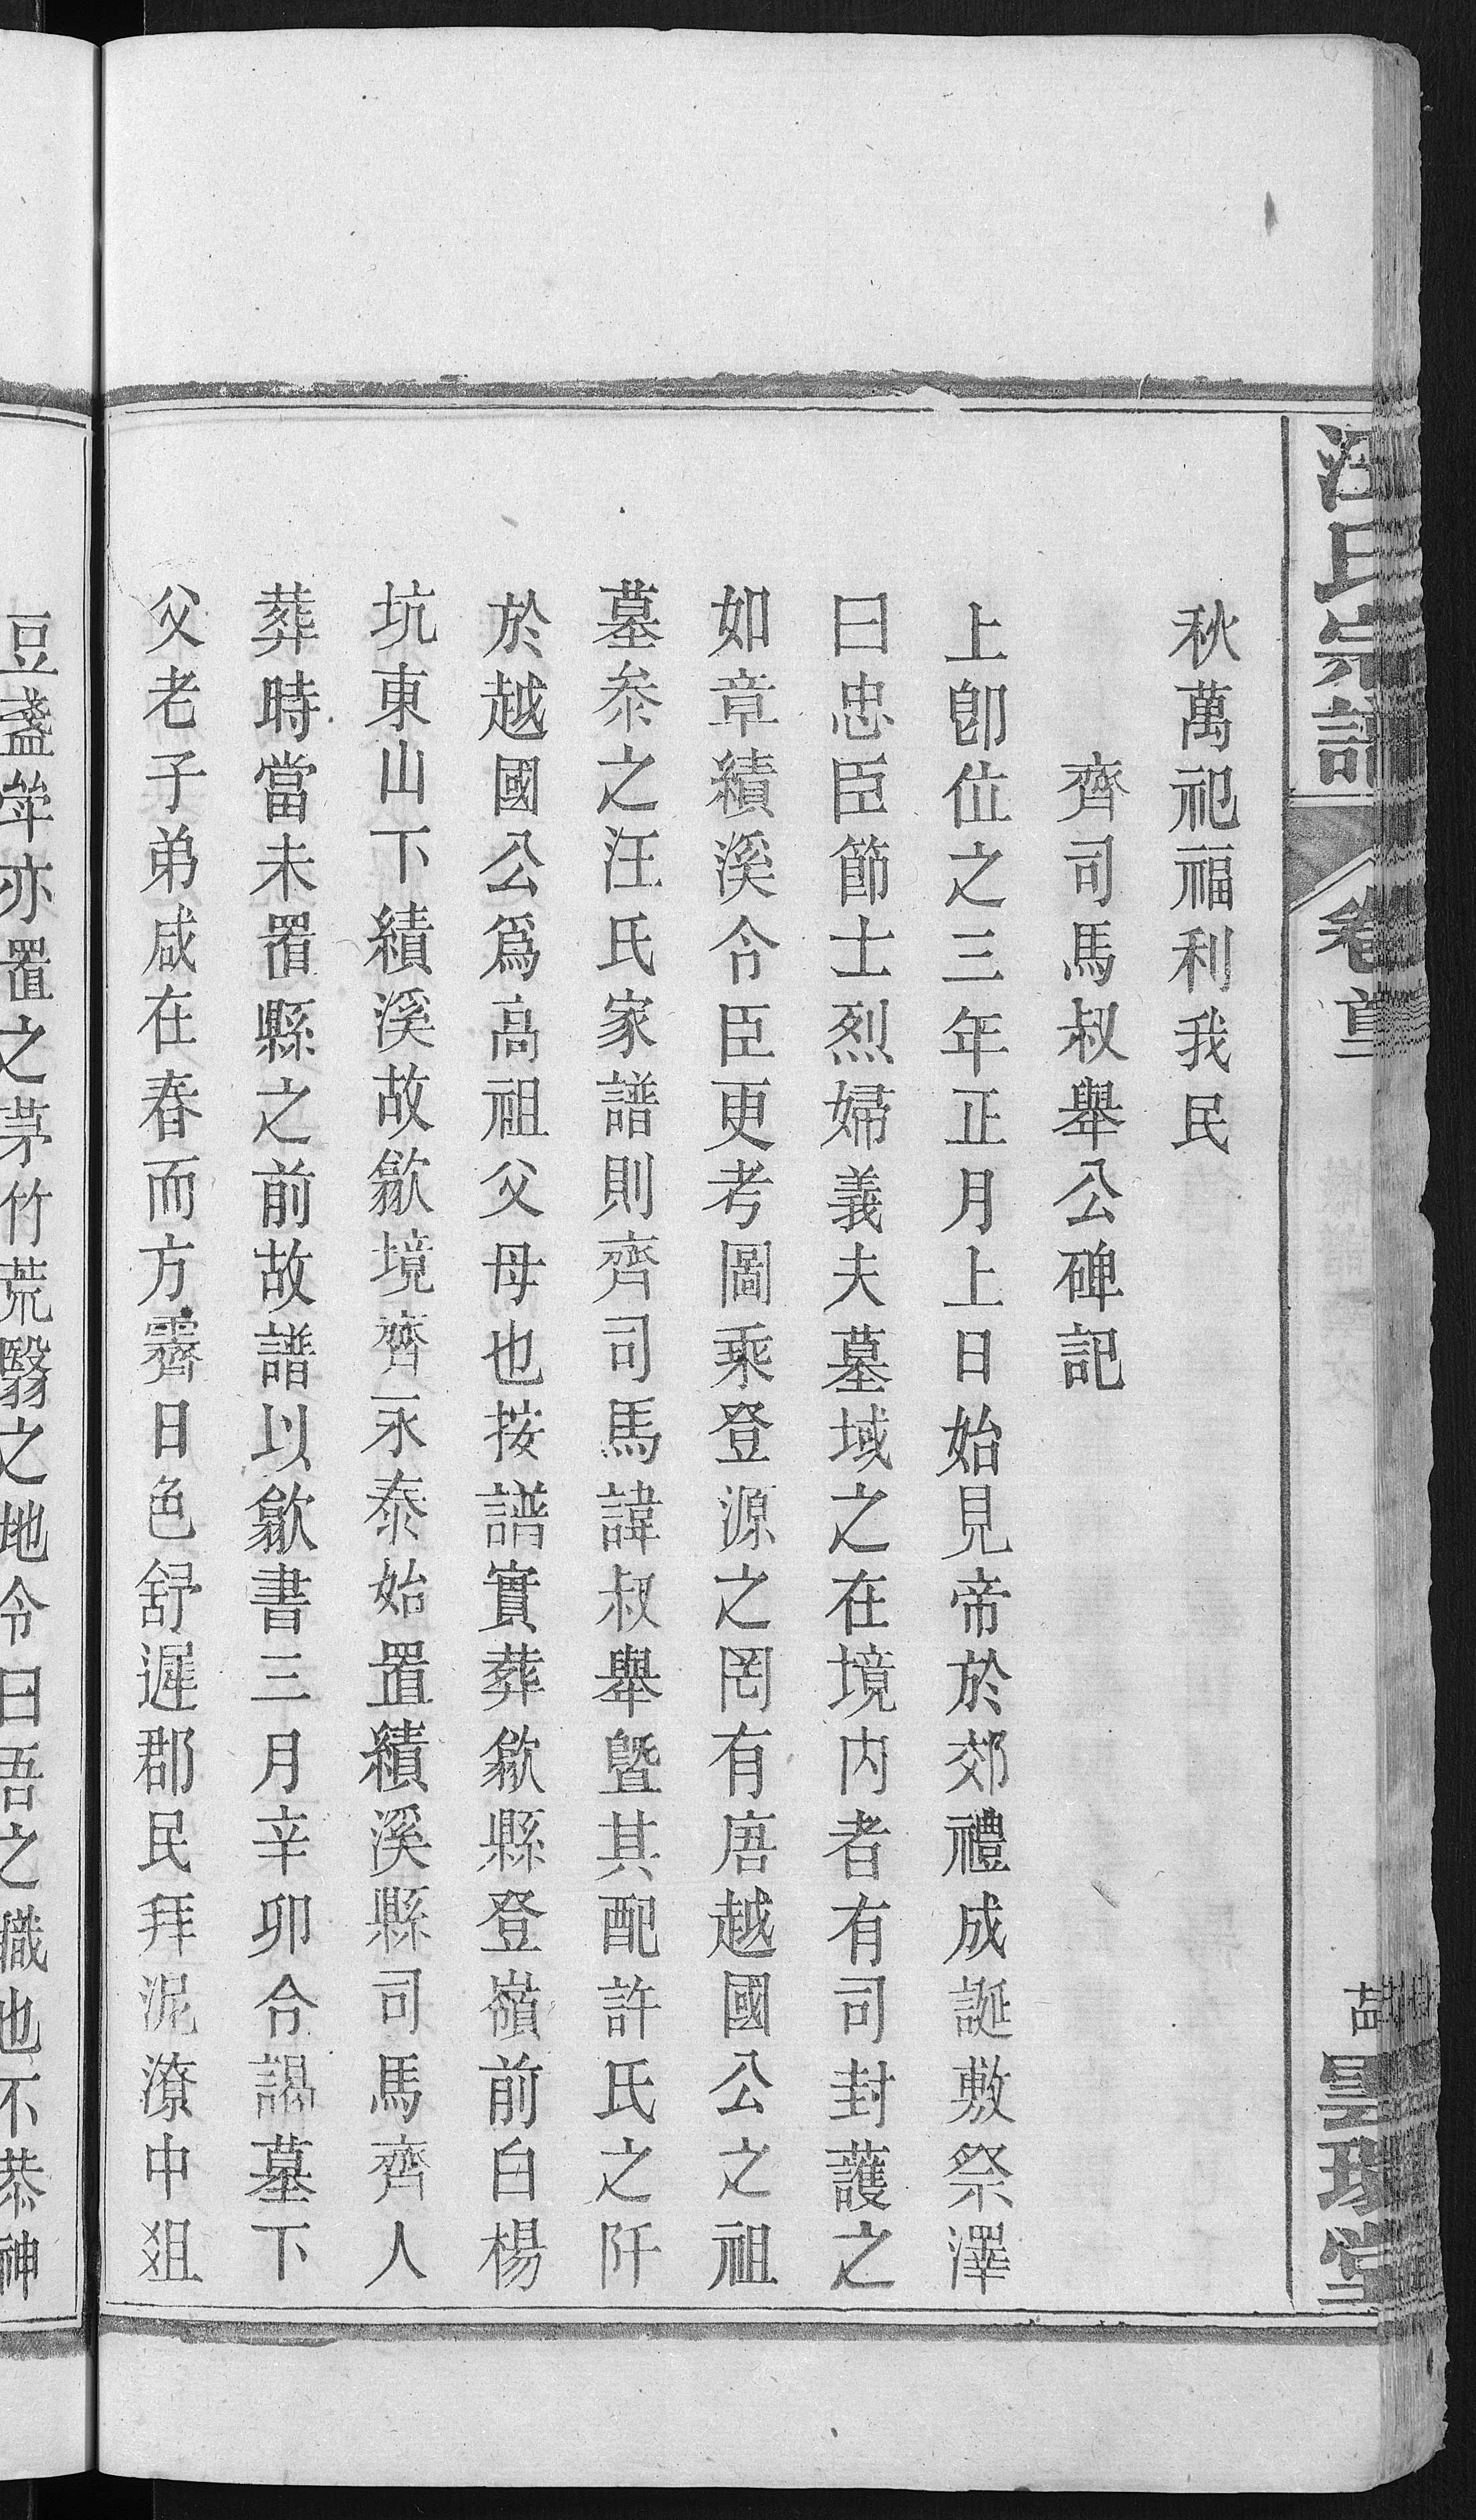 汪氏宗譜
卷首
曇瑞堂
秋萬祀福利我民
齊司馬叔舉公碑記
上卽位之三年正月上日始見帝於郊禮成誕敷祭澤
曰忠臣節士烈婦義夫墓域之在境内者有司封護之
如章績溪令臣更考圖乘登源之罔有唐越國公之祖
墓叅之汪氏家譜則齊司馬諱叔舉曁其配許氏之阡
於越國公爲高祖父母也按譜實葬歙縣登嶺前白楊
坑東山下績溪故歙境齊永泰始置績溪縣司馬齊人
葬時當未置縣之前故譜以歙書三月辛卯令謁墓下
父老子弟咸在春而方霽日色舒遲郡民拜泥潦中爼
豆盞斝亦置之茅竹荒翳之地令曰吾之職也不恭神